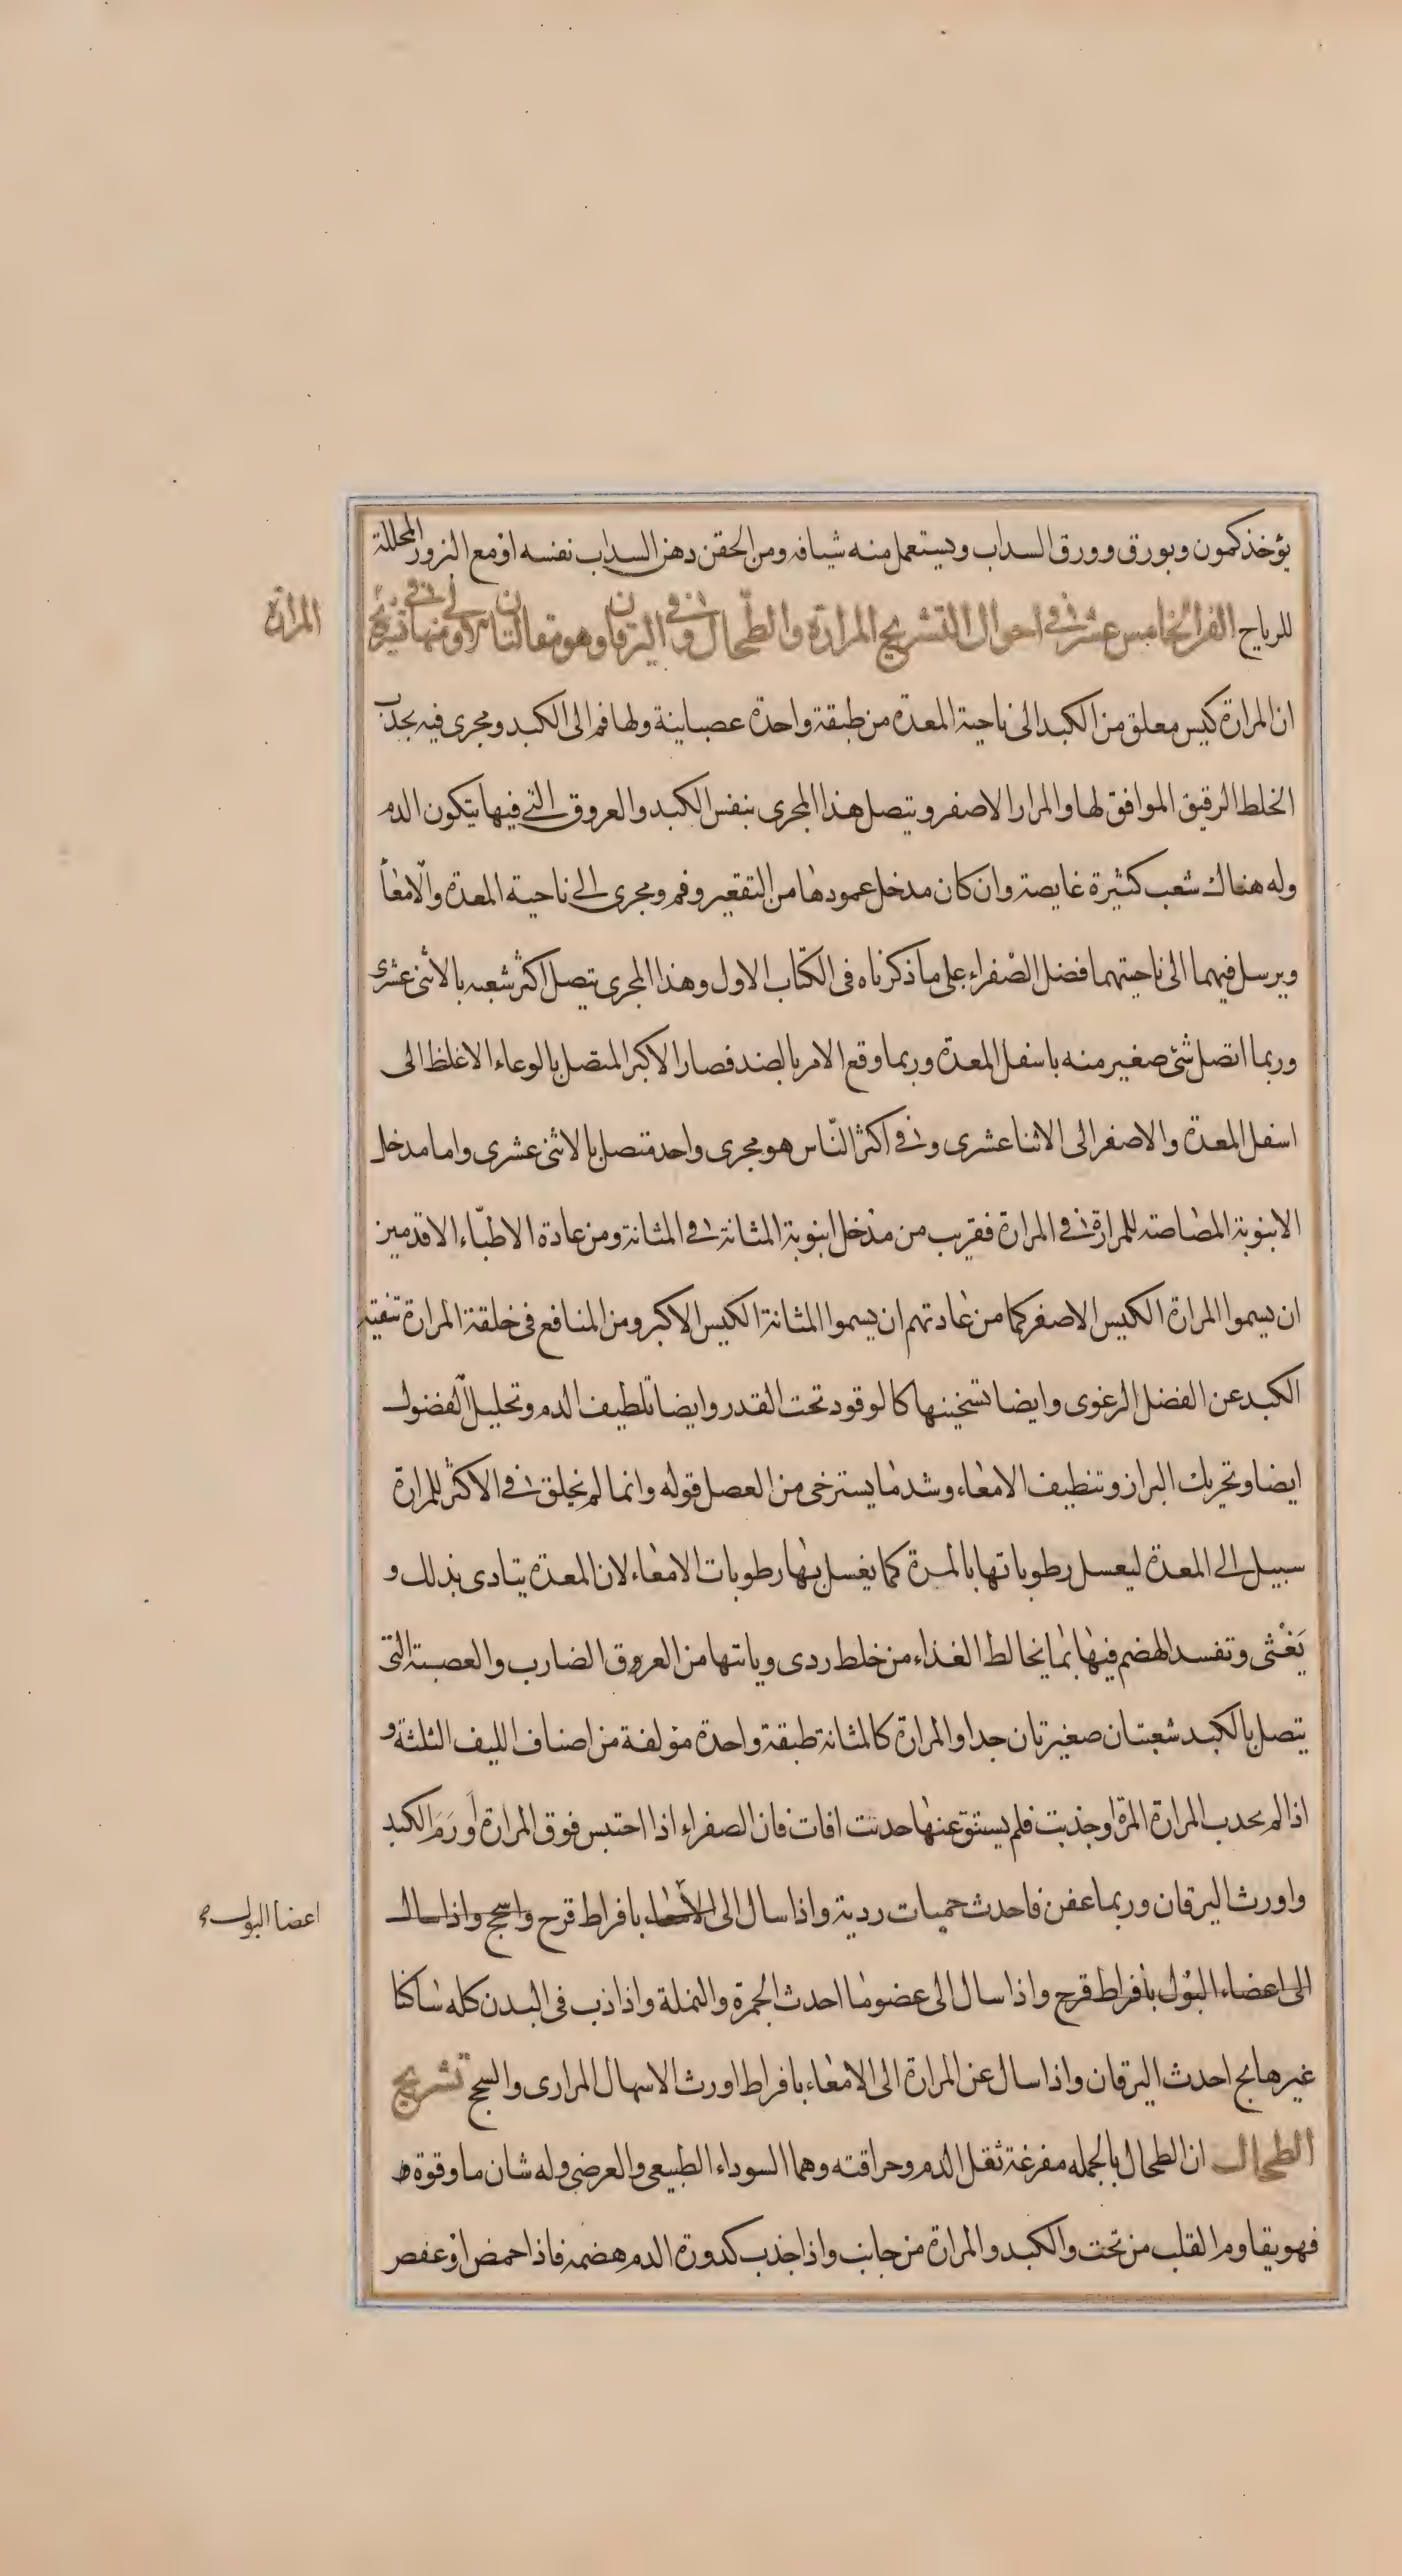 يؤخذ كمون وبورق وورق السداب ويستعمل منه شيافه ومن الحقن دهن السداب نفسه او مع البزور المحللة
للرياح الفن الخامس عشر في احوال التشريح المرارة والطحال وفي اليرقان وهو مقالتان الاولى في منها تشريح
المرارة
ان المرارة كيس معلق من الكبد الى ناحية المعدة من طبقة واحدة عصباينة ولها فم الى الكبد ومجرى فيه يجذب
الخلط الرقيق الموافق لها والمرار الاصفر ويتصل هذا المجرى بنفس الكبد والعروق التي فيها يتكون الدم
وله هناك شعب كثيرة غايصة وان كان مدخل عمودها من التقعير وفم ومجرى الى ناحية المعدة والامعأ
ويرسل فيهما الى ناحيتهما فضل الصفراء على ما ذكرناه في الكتاب الاول وهذا المجرى يتصل اكثر شعبه بالاثنى عشرى
وربما اتصل شئ صغير منه باسفل المعدة وربما وقع الامر بالضد فصار الاكبر المتصل بالوعاء الاغلظ الى
اسفل المعدة والاصغر الى الاثنا عشرى وفي اكثر النّاس هو مجرى واحد متصل بالاثنى عشرى واما مدخل
الانبوبة المصاصة للمرارة في المرارة فقريب من مدخل انبوبة المثانة في المثانة ومن عادة الاطبّاء الاقدمين
ان يسموا المرارة الكيس الاصغر كما من عادتهم ان يسموا المثانة الكيس الاكبر ومن المنافع في خلقة المرارة تنقية
الكبد عن الفضل الرغوى وايضا تسخينها كالوقود تحت القدر وايضا تلطيف الدم وتحليل الفضول
ايضا وتحريك البراز وتنظيف الامعاء وشد ما يسترخى من العصل قوله وانما لم يخلق في الاكثر للمرارة
سبيل الى المعدة ليعسل رطوباتها بالمرة كما يغسل بها رطوبات الامعاء لان المعدة يتادى بذلك و
يَغْثى وتفسد الهضم فيها بما يخالط الغذاء من خلط ردى وياتها من العروق الضارب والعصبة التى
يتصل بالكبد شعبتان صغيرتان جدا والمرارة كالمثانة طبقة واحدة مؤلفة من اصناف الليف الثلثة و
اذا لم يحدب المرارة المرة او جذبت فلم يستنق عنها حدثت افات فان الصفراء اذا احتبس فوق المرارة أورَمَ الكبد
واورث اليرقان وربما عفن فاحدث حميات ردية واذا سال الى الامعاء بافراط قرح واسحج واذا سال
اعضا البول صح
الى اعضاء البول بافراط قرح واذا سال الى عضو ما احدث الحمرة والنملة واذا ذب في البدن كله ساكنا
غير هايج احدث اليرقان واذا سال عن المرارة الى الامعاء بافراط اورث الاسهال المرارى والسحج تشريح
الطحال ان الطحال بالجمله مفرغة ثقل الدم وحراقته وهما السوداء الطبيعى والعرضى وله شان ما وقوة ط
فهو يقاوم القلب من تحت والكبد والمرارة من جانب واذا جذب كدورة الدم هضمه فاذا احمض او عفص